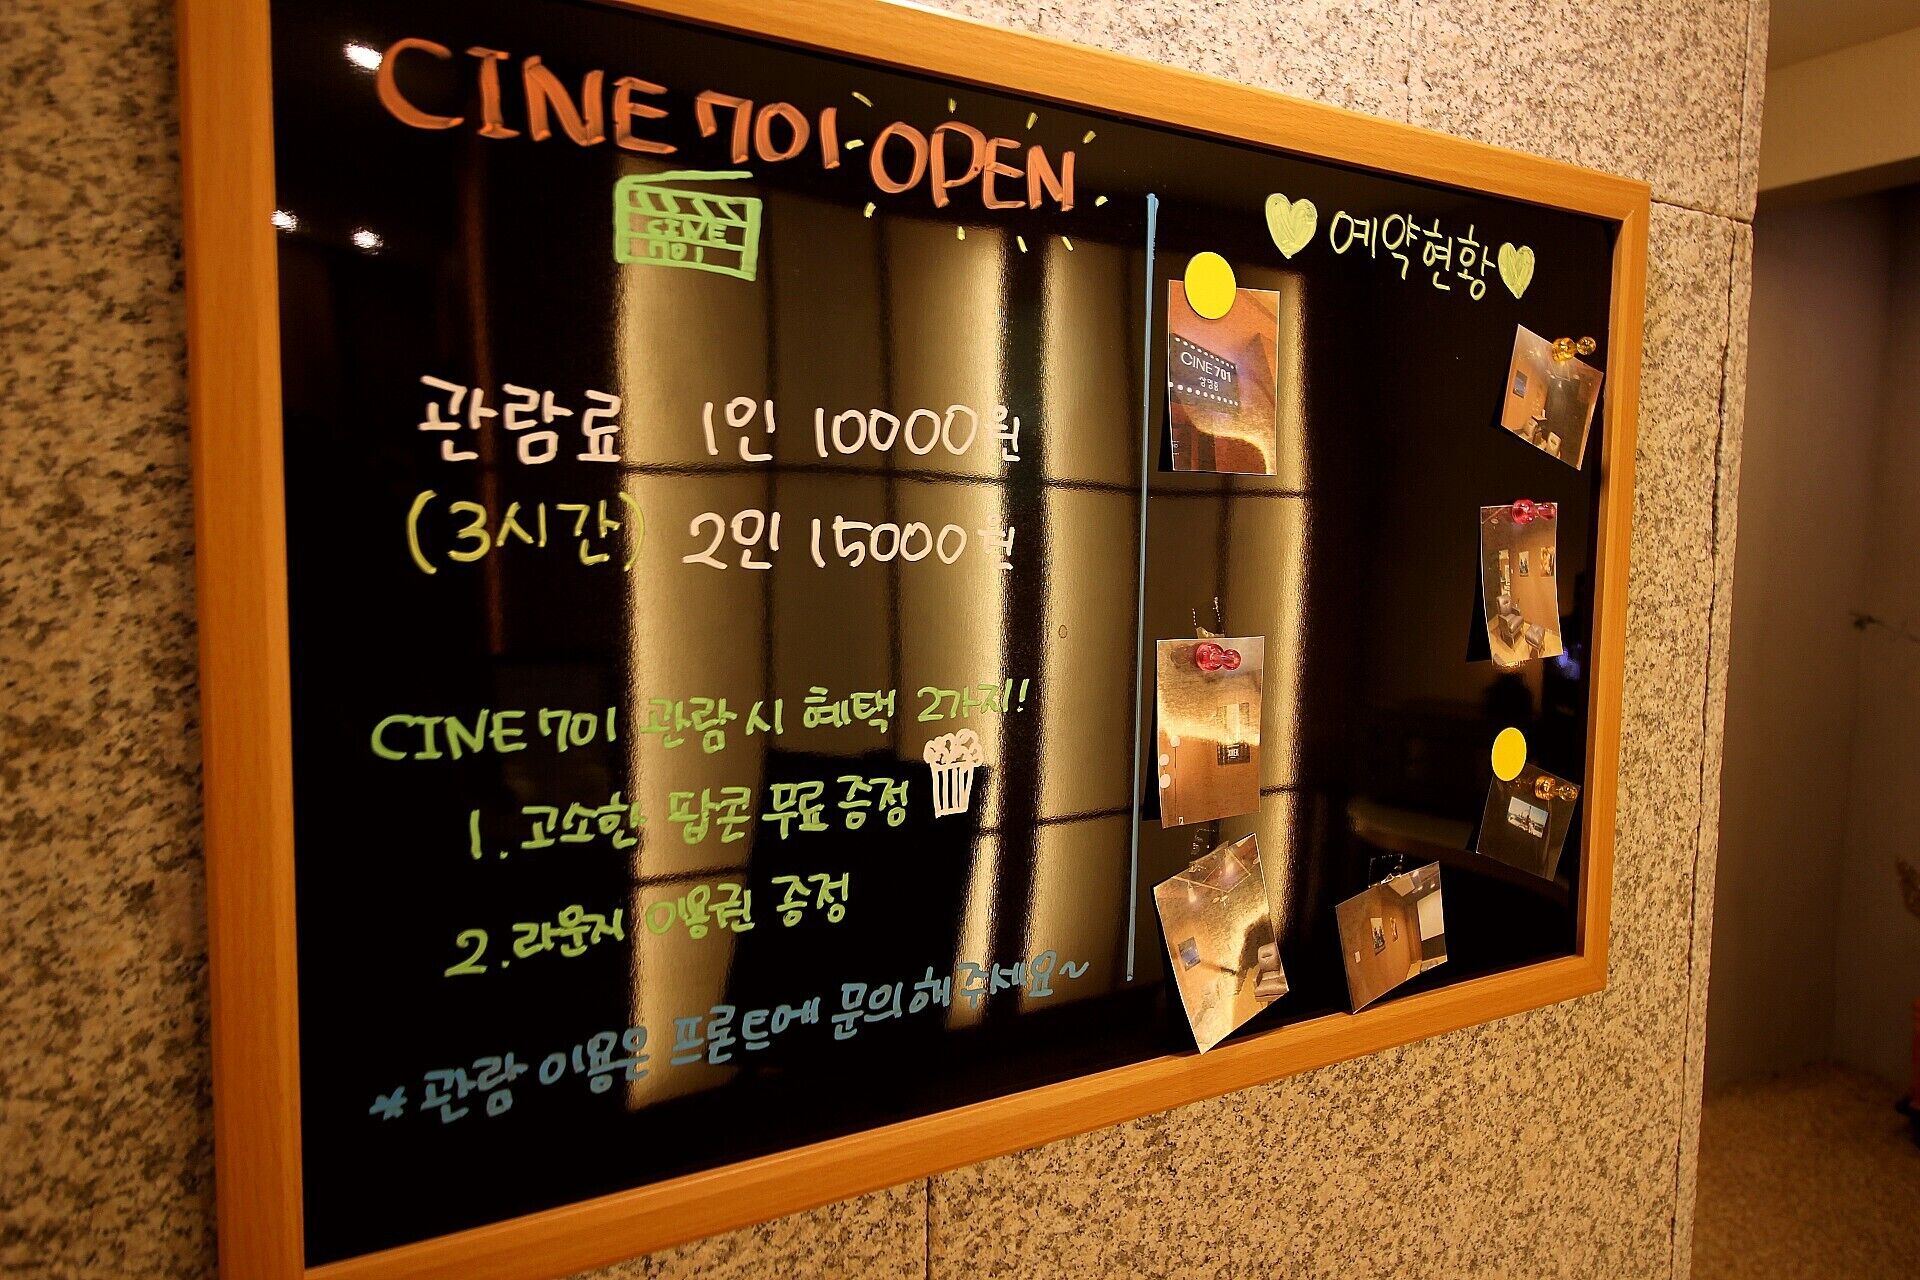 CINE 701 OPEN
CINE
701
관람료 1인 10000원
(3시간) 2인 15000원
CINE 701 관람시 혜택 2가지!
1. 고소한 팝콘 무료 증정
2. 라운지 이용권 증정
* 관람 이용은 프론트에 문의해 주세요~
예약현황
CINE 701
상영중